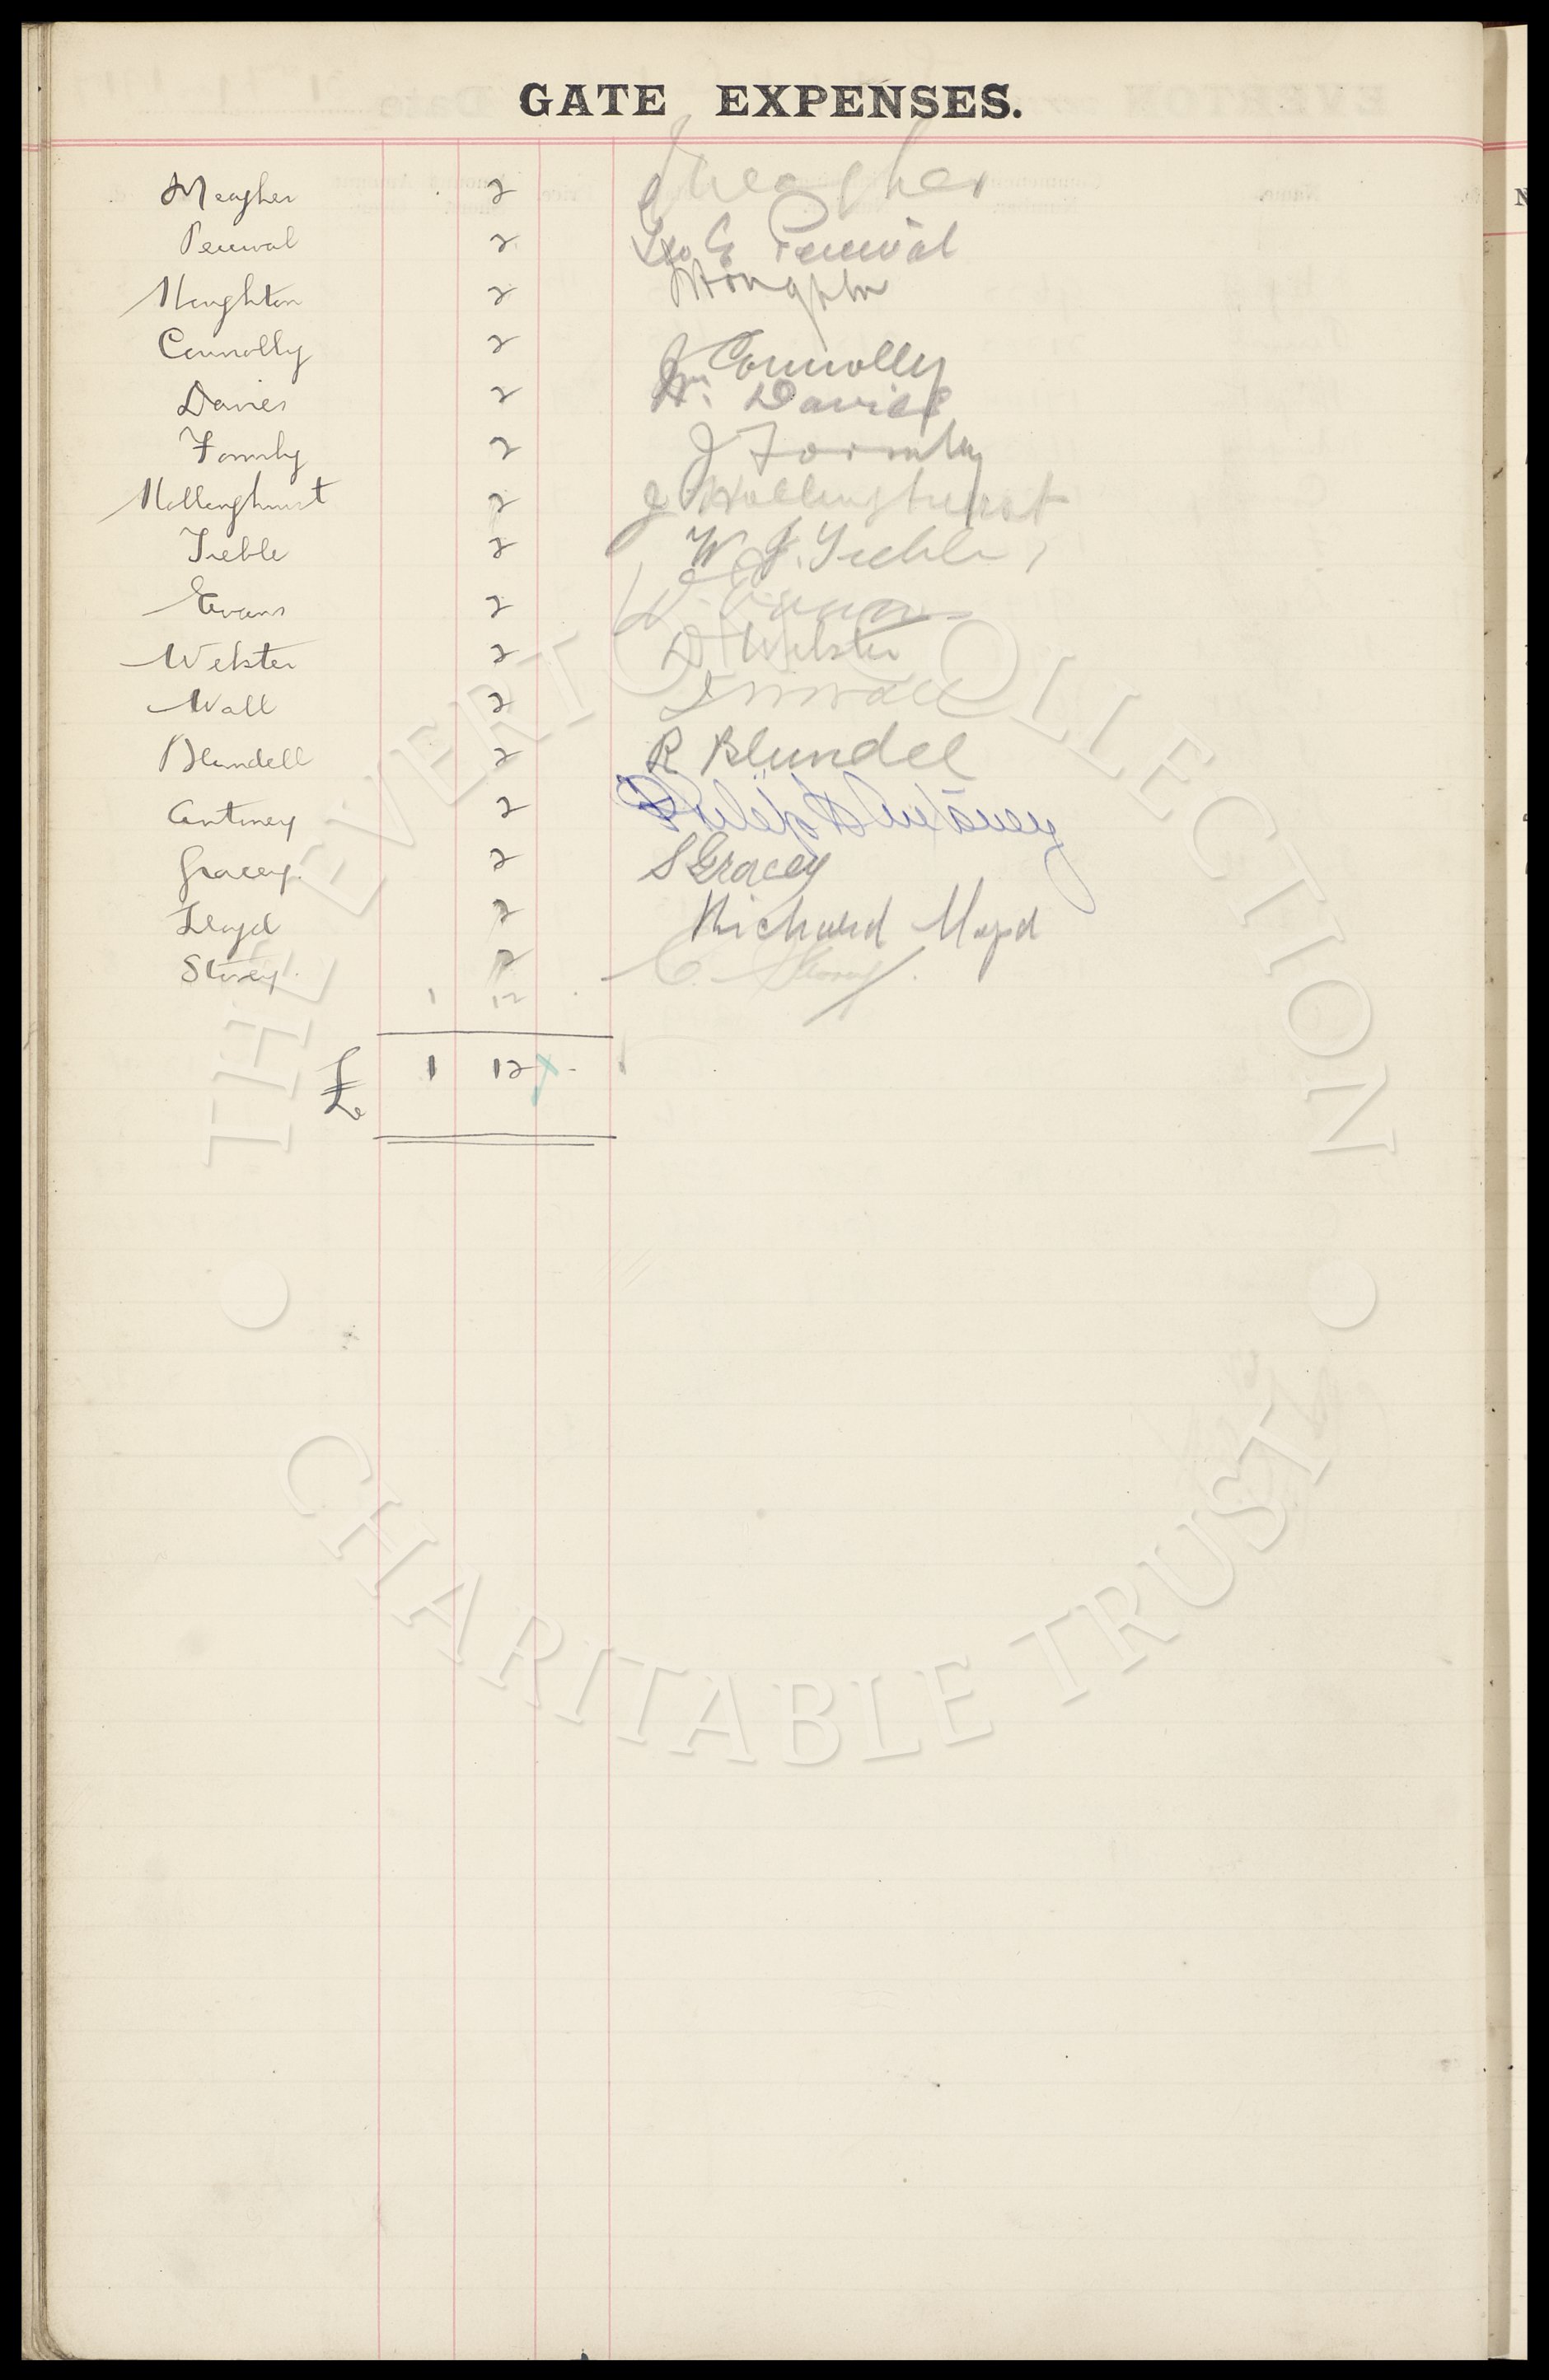 GATE EXPENSES.
Meagher 2 J Meagher
Percival 2 Geo E Percival
Houghton 2 Houghton
Connolly 2 J Connolly
Davies 2 W. Davies
Formby 2 J Formby
Hollinghurst 2 J Hollinghurst
Treble 2 W J. Treble
Evans 2 Evans
Webster 2 D Webster
Wall 2 J Wall
Blundell 2 R Blundel
Antiney 2 Philip Antiney
Gracey. 2 S Gracey
Lloyd 2 Richard Lloyd
Storey. 2 C. Storey
1 12
£ 1 12 -
THE EVERTON COLLECTION
CHARITABLE TRUST